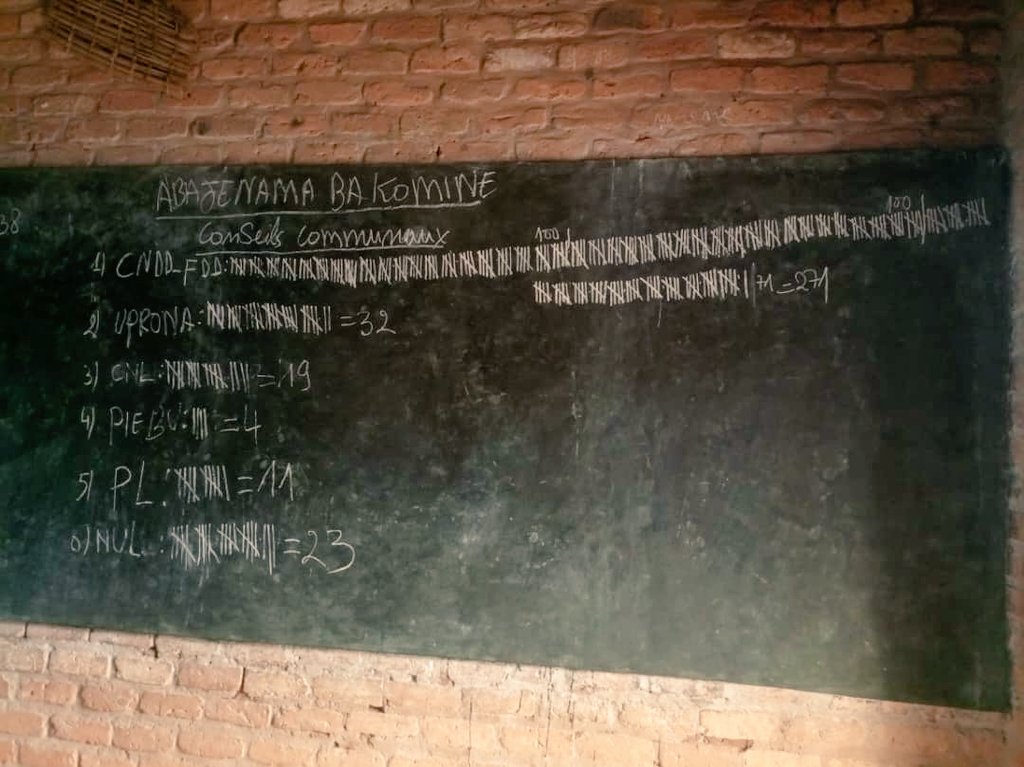 38
ABAJENAMA BA KOMINE
Conseils communaux
100 100
1) CNDD FDD:
71 = 271
2) UPRONA: = 32
3) CNL: = 19
4) PIEBU: = 4
5) PL: = 11
6) NUL: = 23